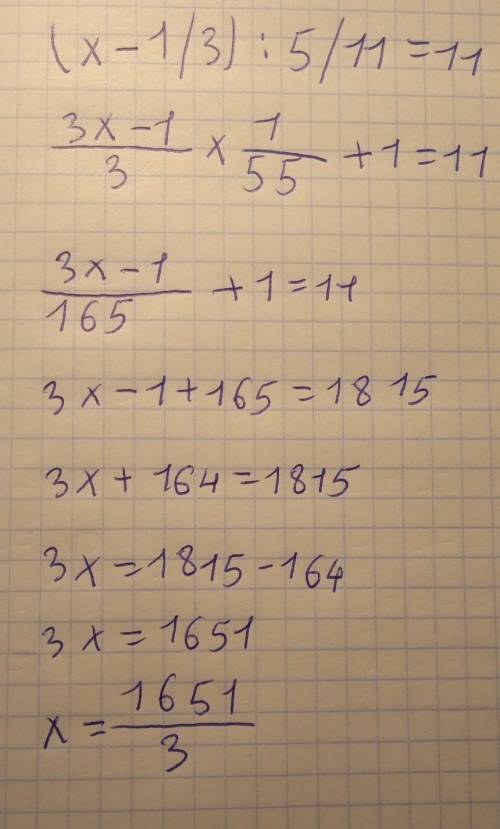 (x-1/3):5/11=11
3x-1/3 x 1/55 +1=11
3x-1/165 +1=11
3x-1+165=1815
3x+164=1815
3x=1815-164
3x=1651
x=1651/3